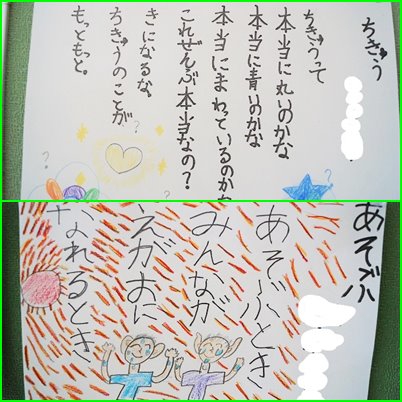 ちきゅう
ちきゅうって
本当に丸いのかな
本当に青いのかな
本当にまわっているのかな
これぜんぶ本当なの?
きになるな。
ちきゅうのことが
もっともっと。
あそぶ
あそぶとき
みんなが
えがおに
なれるとき